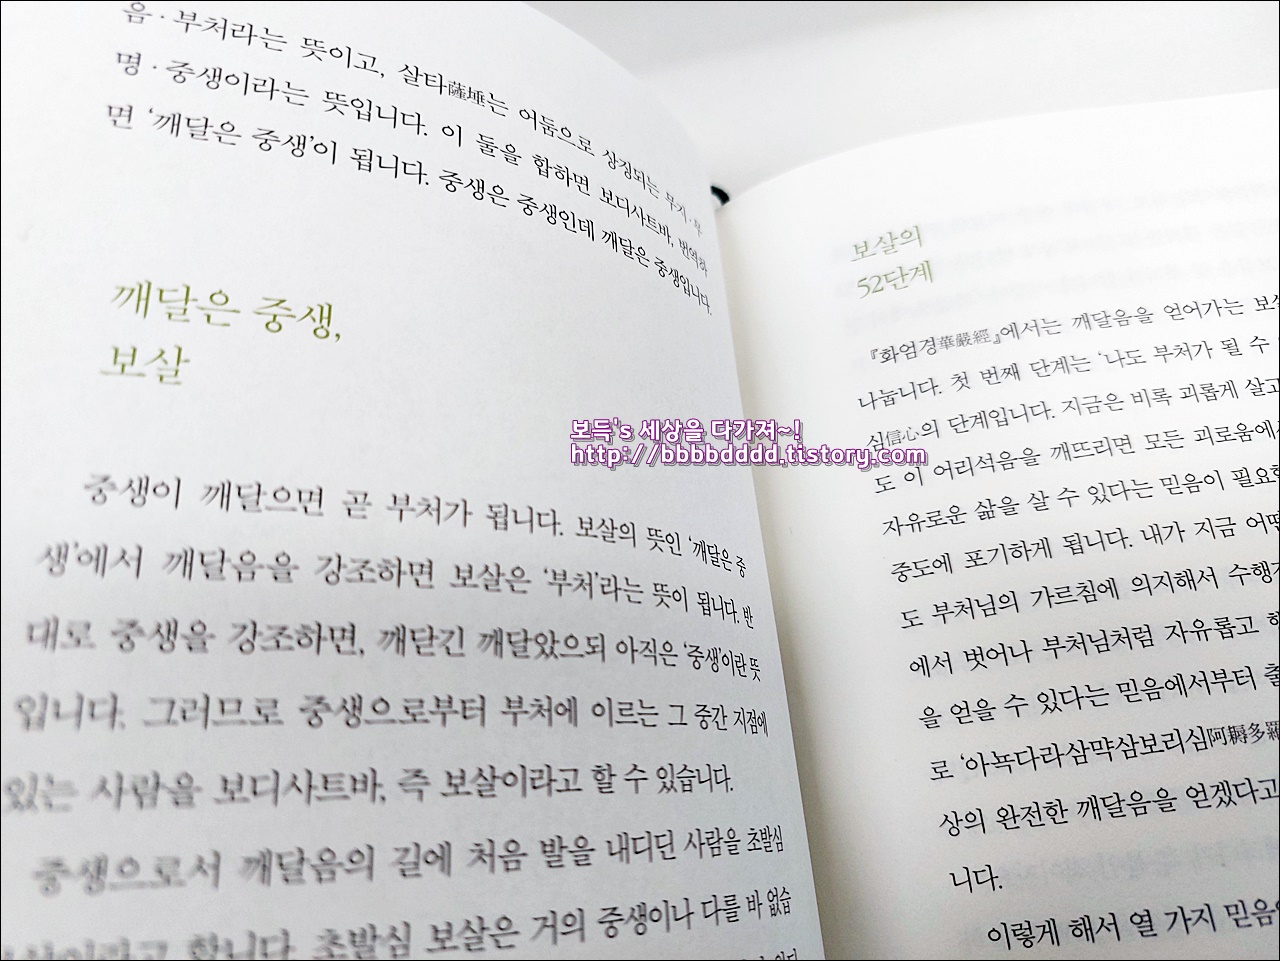 음·부처라는 뜻이고, 살타薩埵는 어둠으로 상징되는 무지·무
명·중생이라는 뜻입니다. 이 둘을 합하면 보디사트바, 번역하
면 '깨달은 중생'이 됩니다. 중생은 중생인데 깨달은 중생입니다.
깨달은 중생,
보살
중생이 깨달으면 곧 부처가 됩니다. 보살의 뜻인 '깨달은 중
생'에서 깨달음을 강조하면 보살은 '부처'라는 뜻이 됩니다. 반
대로 중생을 강조하면, 깨닫긴 깨달았으되 아직은 '중생'이란 뜻
입니다. 그러므로 중생으로부터 부처에 이르는 그 중간 지점에
있는 사람을 보디사트바, 즉 보살이라고 할 수 있습니다.
중생으로서 깨달음의 길에 처음 발을 내디딘 사람을 초발심
합니다. 초발심 보살은 거의 중생이나 다를 바 없습
보살의
52단계
『화엄경華嚴經』에서는 깨달음을 얻어가는 보살
나눕니다. 첫 번째 단계는 '나도 부처가 될 수
심信心의 단계입니다. 지금은 비록 괴롭게 살고
도 이 어리석음을 깨뜨리면 모든 괴로움에서
자유로운 삶을 살 수 있다는 믿음이 필요한
중도에 포기하게 됩니다. 내가 지금 어떤
도 부처님의 가르침에 의지해서 수행
에서 벗어나 부처님처럼 자유롭고
을 얻을 수 있다는 믿음에서부터 출
로 '아뇩다라삼먁삼보리심阿耨多羅
상의 완전한 깨달음을 얻겠다고
니다.
이렇게 해서 열 가지 믿음
보득's 세상을 다가져~!
http://bbbbdddd.tistory.com